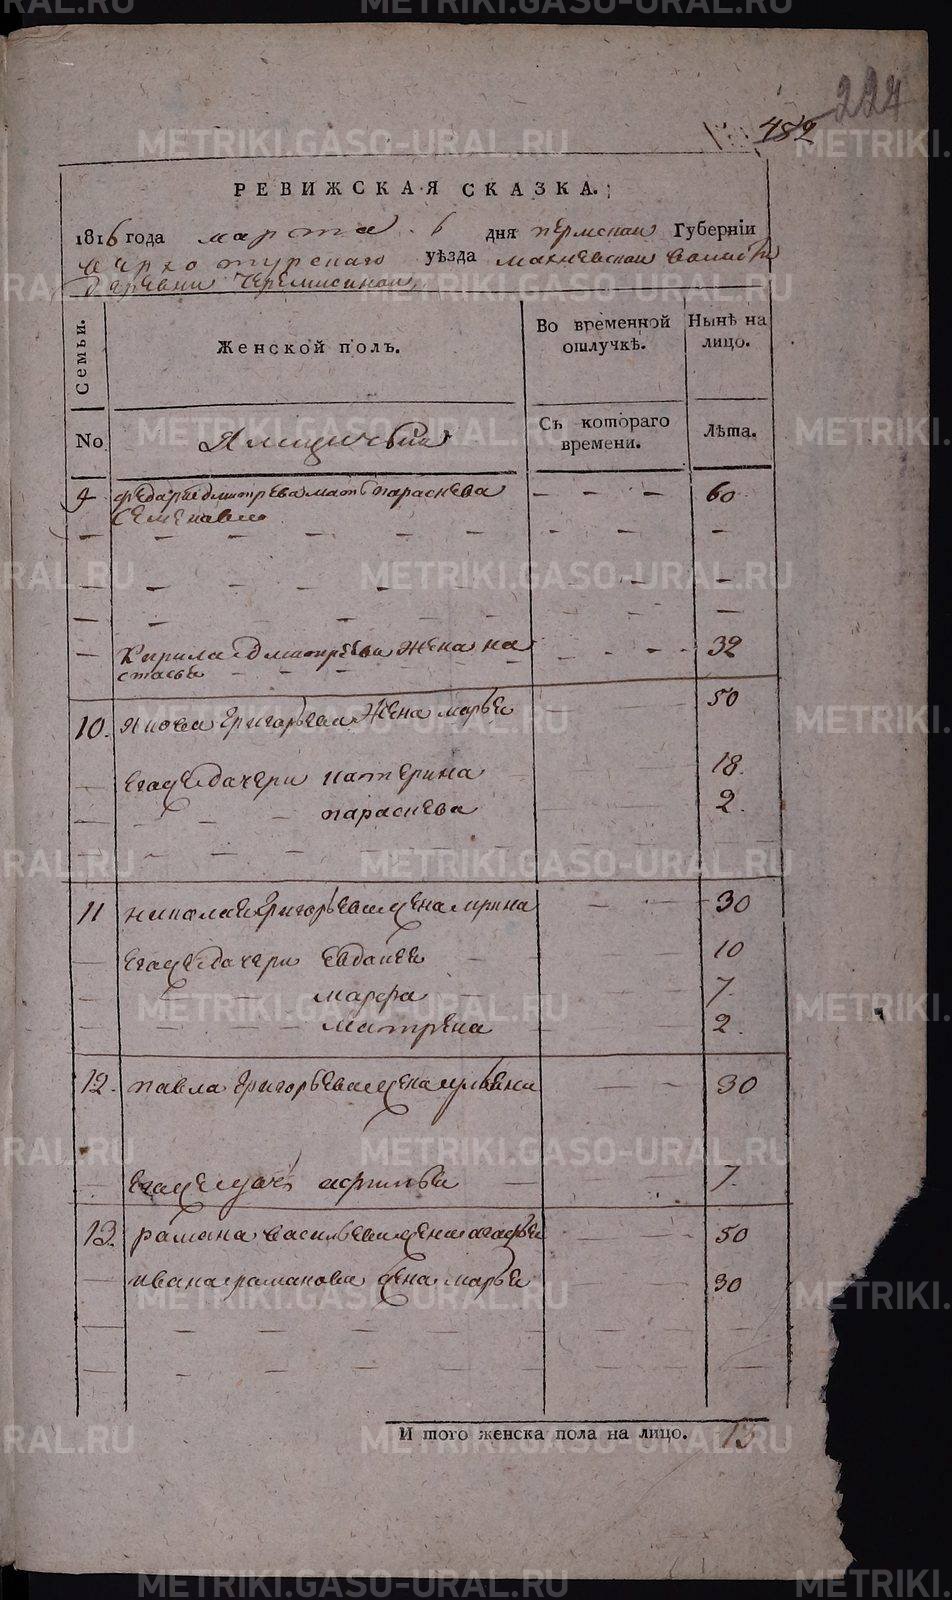 224
482
РЕВИЖСКАЯ СКАЗКА.
1816 года марта 6 дня пермской Губернїи
верхотурскаго уѣзда махневской волости
деревни Черемисиной
Семьи.
Женской полъ.
Во временной отлучкѣ.
Нынѣ на лицо.
No
Ямщичьей
Съ котораго времени.
Лѣта.
9 федара дмитрева мать параскева 60
семенавна
Кирила дмитрева жена на 32
стасья
10. Якова григорьева жена марья 50
егаже дачери катерина 18.
параскева 2.
11 николая григорьева жена ирина 30
егаже дачери евдакея 10
марфа 7.
матрена 2.
12. павла григорьева жена ульяна 30
егаже дачь 7.
13. рамана васильева жена агафья 50
ивана раманова жена марья 30
И того женска пола на лицо. 13
METRIKI.GASO-URAL.RU